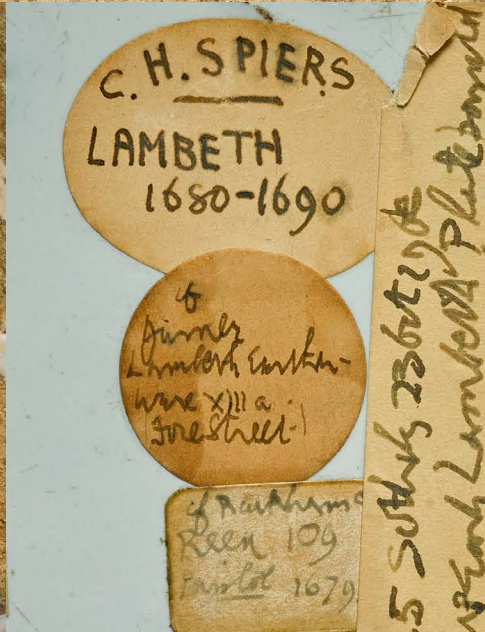 C. H. SPIERS
LAMBETH
1680-1690
cf
Garner
Lambeth Earthen-
ware XIII a
(Fore Street)
cf Rackham
109
Bristol 1679
5 Sothebys 23 Oct
Early Lambeth Plate